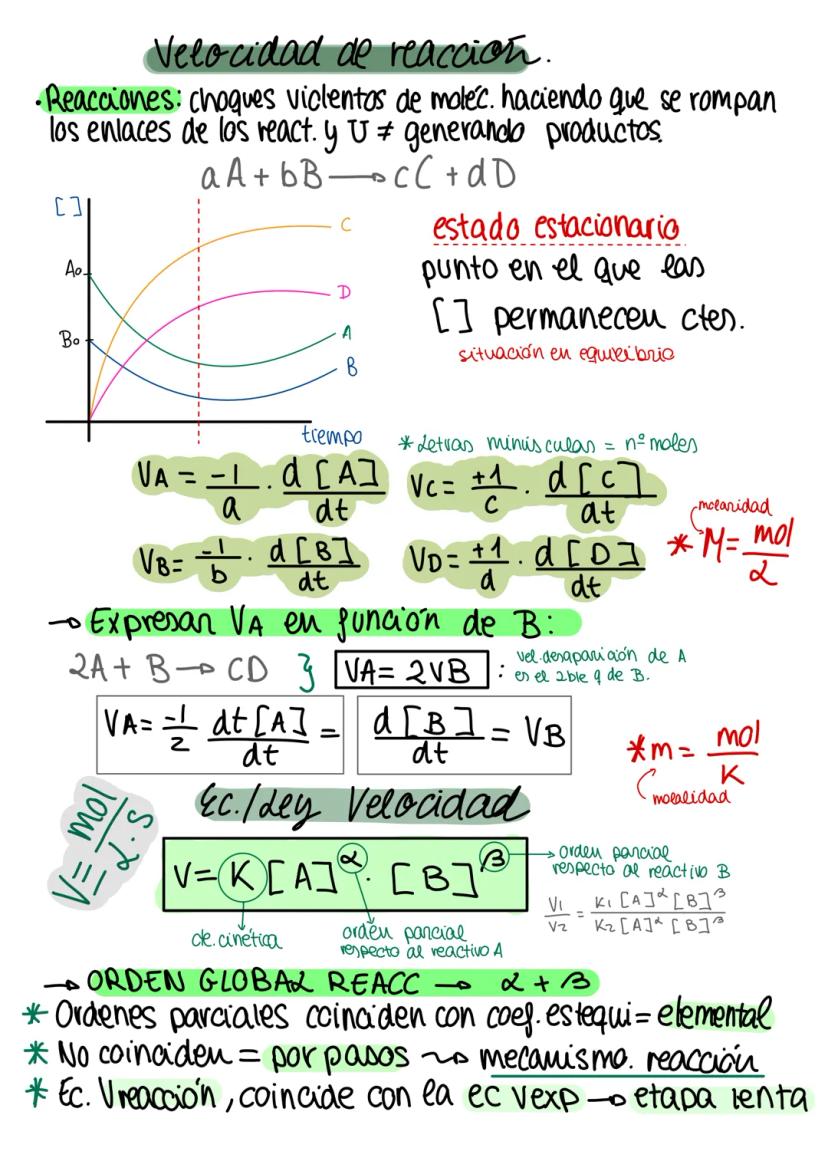 Velocidad de reacción.
· Reacciones: choques violentos de moléc. haciendo que se rompan
los enlaces de los react. y U ≠ generando productos.
aA + bB → cC + dD
[ ]
C
A₀
D
B₀
A
B
tiempo
estado estacionario
punto en el que las
[ ] permanecen ctes.
situación en equilibrio
* Letras minúsculas = nº moles
VA = -1/a · d[A]/dt
VC = +1/c · d[C]/dt
VB = -1/b · d[B]/dt
VD = +1/d · d[D]/dt
molaridad
* M = mol/L
→ Expresar VA en función de B:
2A + B → CD } VA = 2VB : vel. desaparición de A
es el 2ble q de B.
VA = -1/2 dt[A]/dt = d[B]/dt = VB
* m = mol/K
molalidad
Ec./Ley Velocidad
V = mol/L·s
V = K [A]^α · [B]^β
orden parcial
respecto al reactivo B
V₁/V₂ = K₁[A]^α[B]^β / K₂[A]^α[B]^β
cte. cinética
orden parcial
respecto al reactivo A
→ ORDEN GLOBAL REACC → α + β
* Ordenes parciales coinciden con coef. estequi = elemental
* No coinciden = por pasos ⇝ mecanismo. reacción
* Ec. Vreacción, coincide con la ec Vexp → etapa lenta